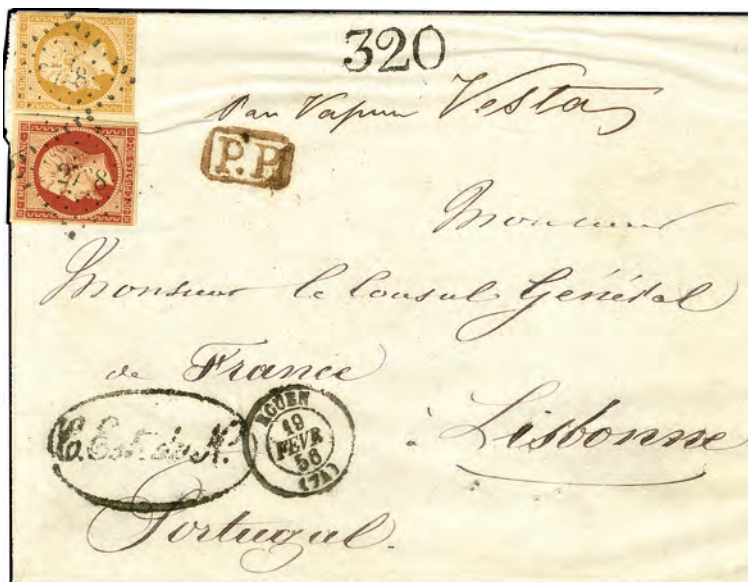 320
Par Vapeur Vesta
P.P.
Monsieur
Monsieur le Consul Général
de France
à Lisbonne
ROUEN
19
FEVR
56
(74)
Portugal.